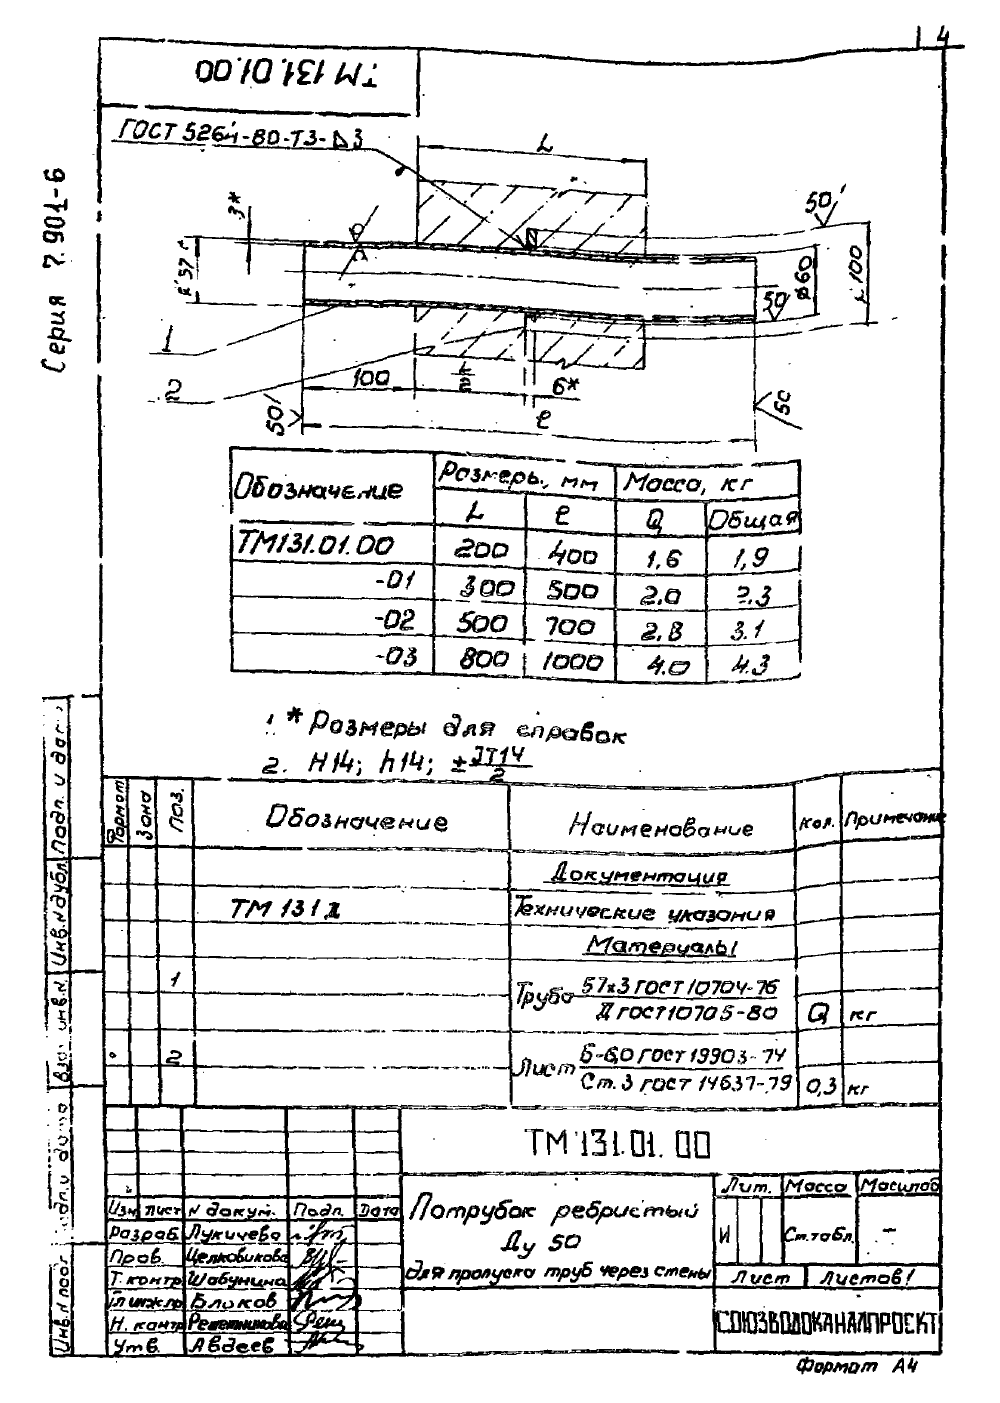 4
ТМ 131.01.00
Серия 7.901-6
ГОСТ 5264-80-Т3-Δ3
L
3*
50
50
ø60
100
1
2
100
6*
50
50
ℓ
Обозначение
Размеры, мм
Масса, кг
L
ℓ
Q
Общая
ТМ131.01.00 200 400 1,6 1,9
-01 300 500 2.0 2.3
-02 500 700 2,8 3.1
-03 800 1000 4.0 4.3
1. * Размеры для справок
2. H14; h14; ± IT14/2
Формат
Зона
Поз.
Обозначение
Наименование
Кол.
Примечание
Документация
ТМ 131Д Технические указания
Материалы
1 Труба 57х3 ГОСТ 10704-76
Д ГОСТ10705-80 Q кг
2 Лист Б-6,0 ГОСТ 19903-74
Ст.3 ГОСТ 14637-79 0,3 кг
Инв.N дубл.
Подп. и дата
ТМ 131.01.00
Изм Лист N докум. Подп. Дата
Разраб. Лукичева
Пров. Целковикова
Т.контр Шабунина
Н. контр Решетникова
Утв. Авдеев
Патрубок ребристый
Ду 50
для пропуска труб через стены
Лит. Масса Масштаб
И Ст.табл. —
Лист Листов 1
СОЮЗВОДОКАНАЛПРОЕКТ
Формат А4